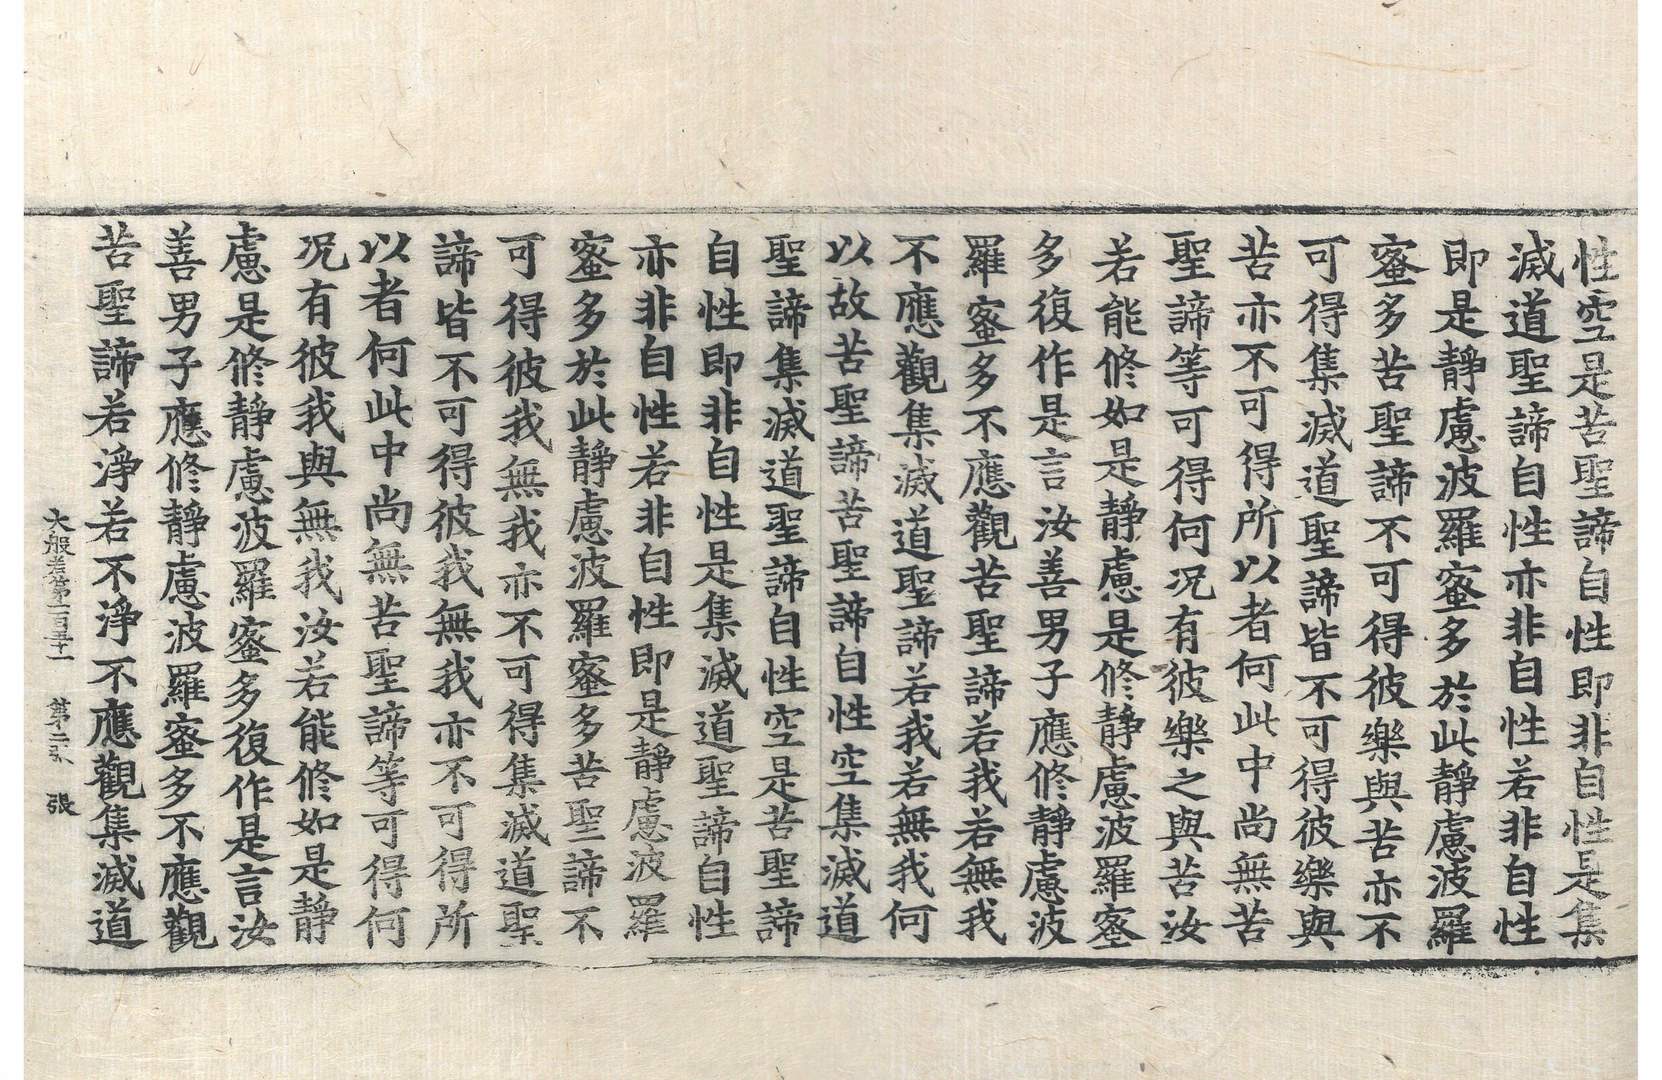 性空是苦聖諦自性即非自性是集
滅道聖諦自性亦非自性若非自性
即是靜慮波羅蜜多於此靜慮波羅
蜜多苦聖諦不可得彼樂與苦亦不
可得集滅道聖諦皆不可得彼樂與
苦亦不可得所以者何此中尚無苦
聖諦等可得何况有彼樂之與苦汝
若能修如是靜慮是修靜慮波羅蜜
多復作是言汝善男子應修靜慮波
羅蜜多不應觀苦聖諦若我若無我
不應觀集滅道聖諦若我若無我何
以故苦聖諦苦聖諦自性空集滅道
聖諦集滅道聖諦自性空是苦聖諦
自性即非自性是集滅道聖諦自性
亦非自性若非自性即是靜慮波羅
蜜多於此靜慮波羅蜜多苦聖諦不
可得彼我無我亦不可得集滅道聖
諦皆不可得彼我無我亦不可得所
以者何此中尚無苦聖諦等可得何
况有彼我與無我汝若能修如是靜
慮是修靜慮波羅蜜多復作是言汝
善男子應修靜慮波羅蜜多不應觀
苦聖諦若淨若不淨不應觀集滅道
大般若第一百五十一 第 張